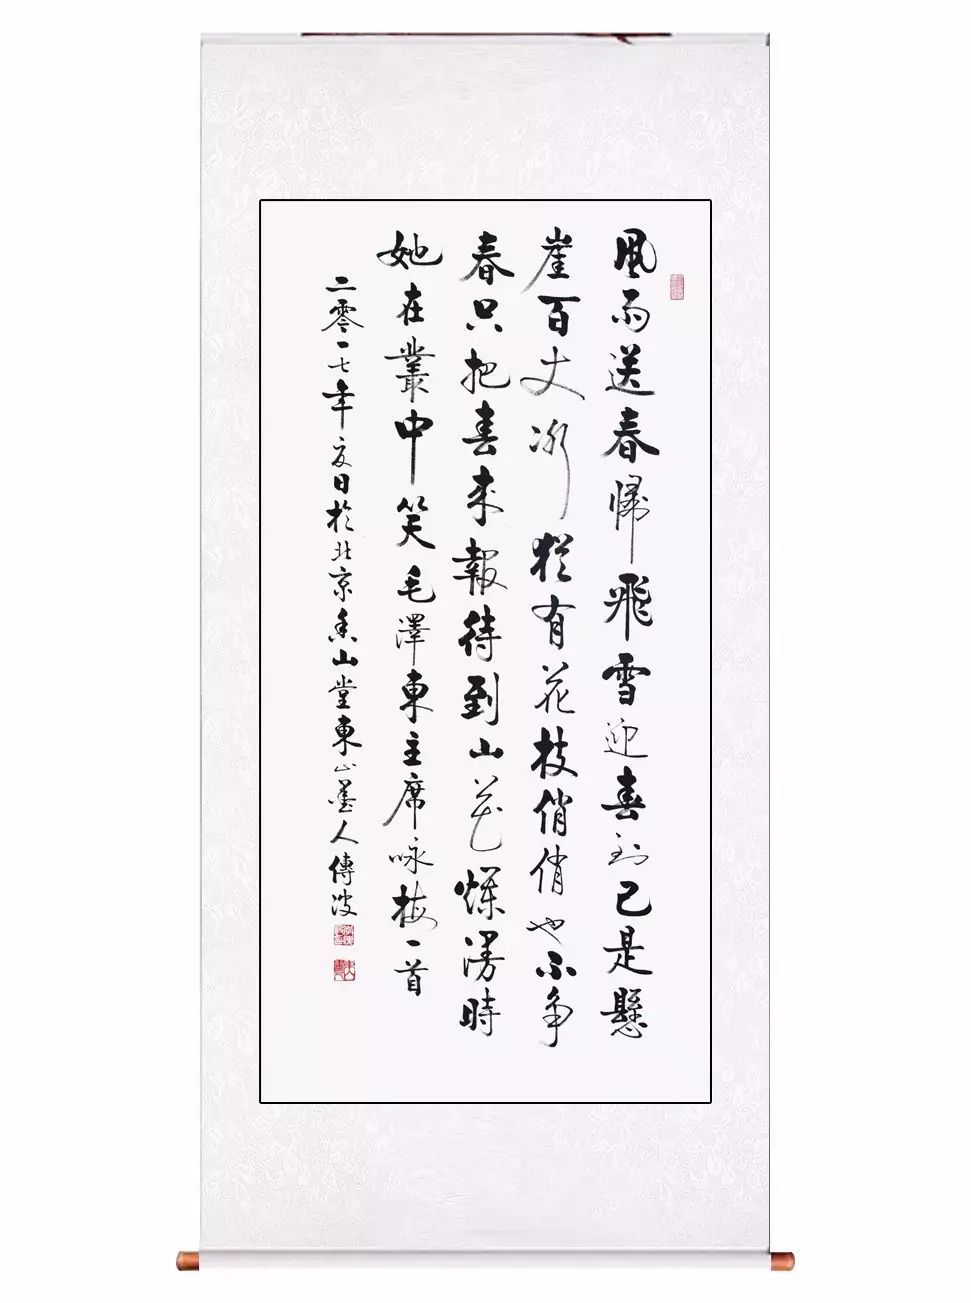 風雨送春歸飛雪迎春到已是懸
崖百丈冰猶有花枝俏俏也不爭
春只把春來報待到山花爛漫時
她在叢中笑毛澤東主席咏梅一首
二零一七年夏日於北京香山堂東山墨人傳波